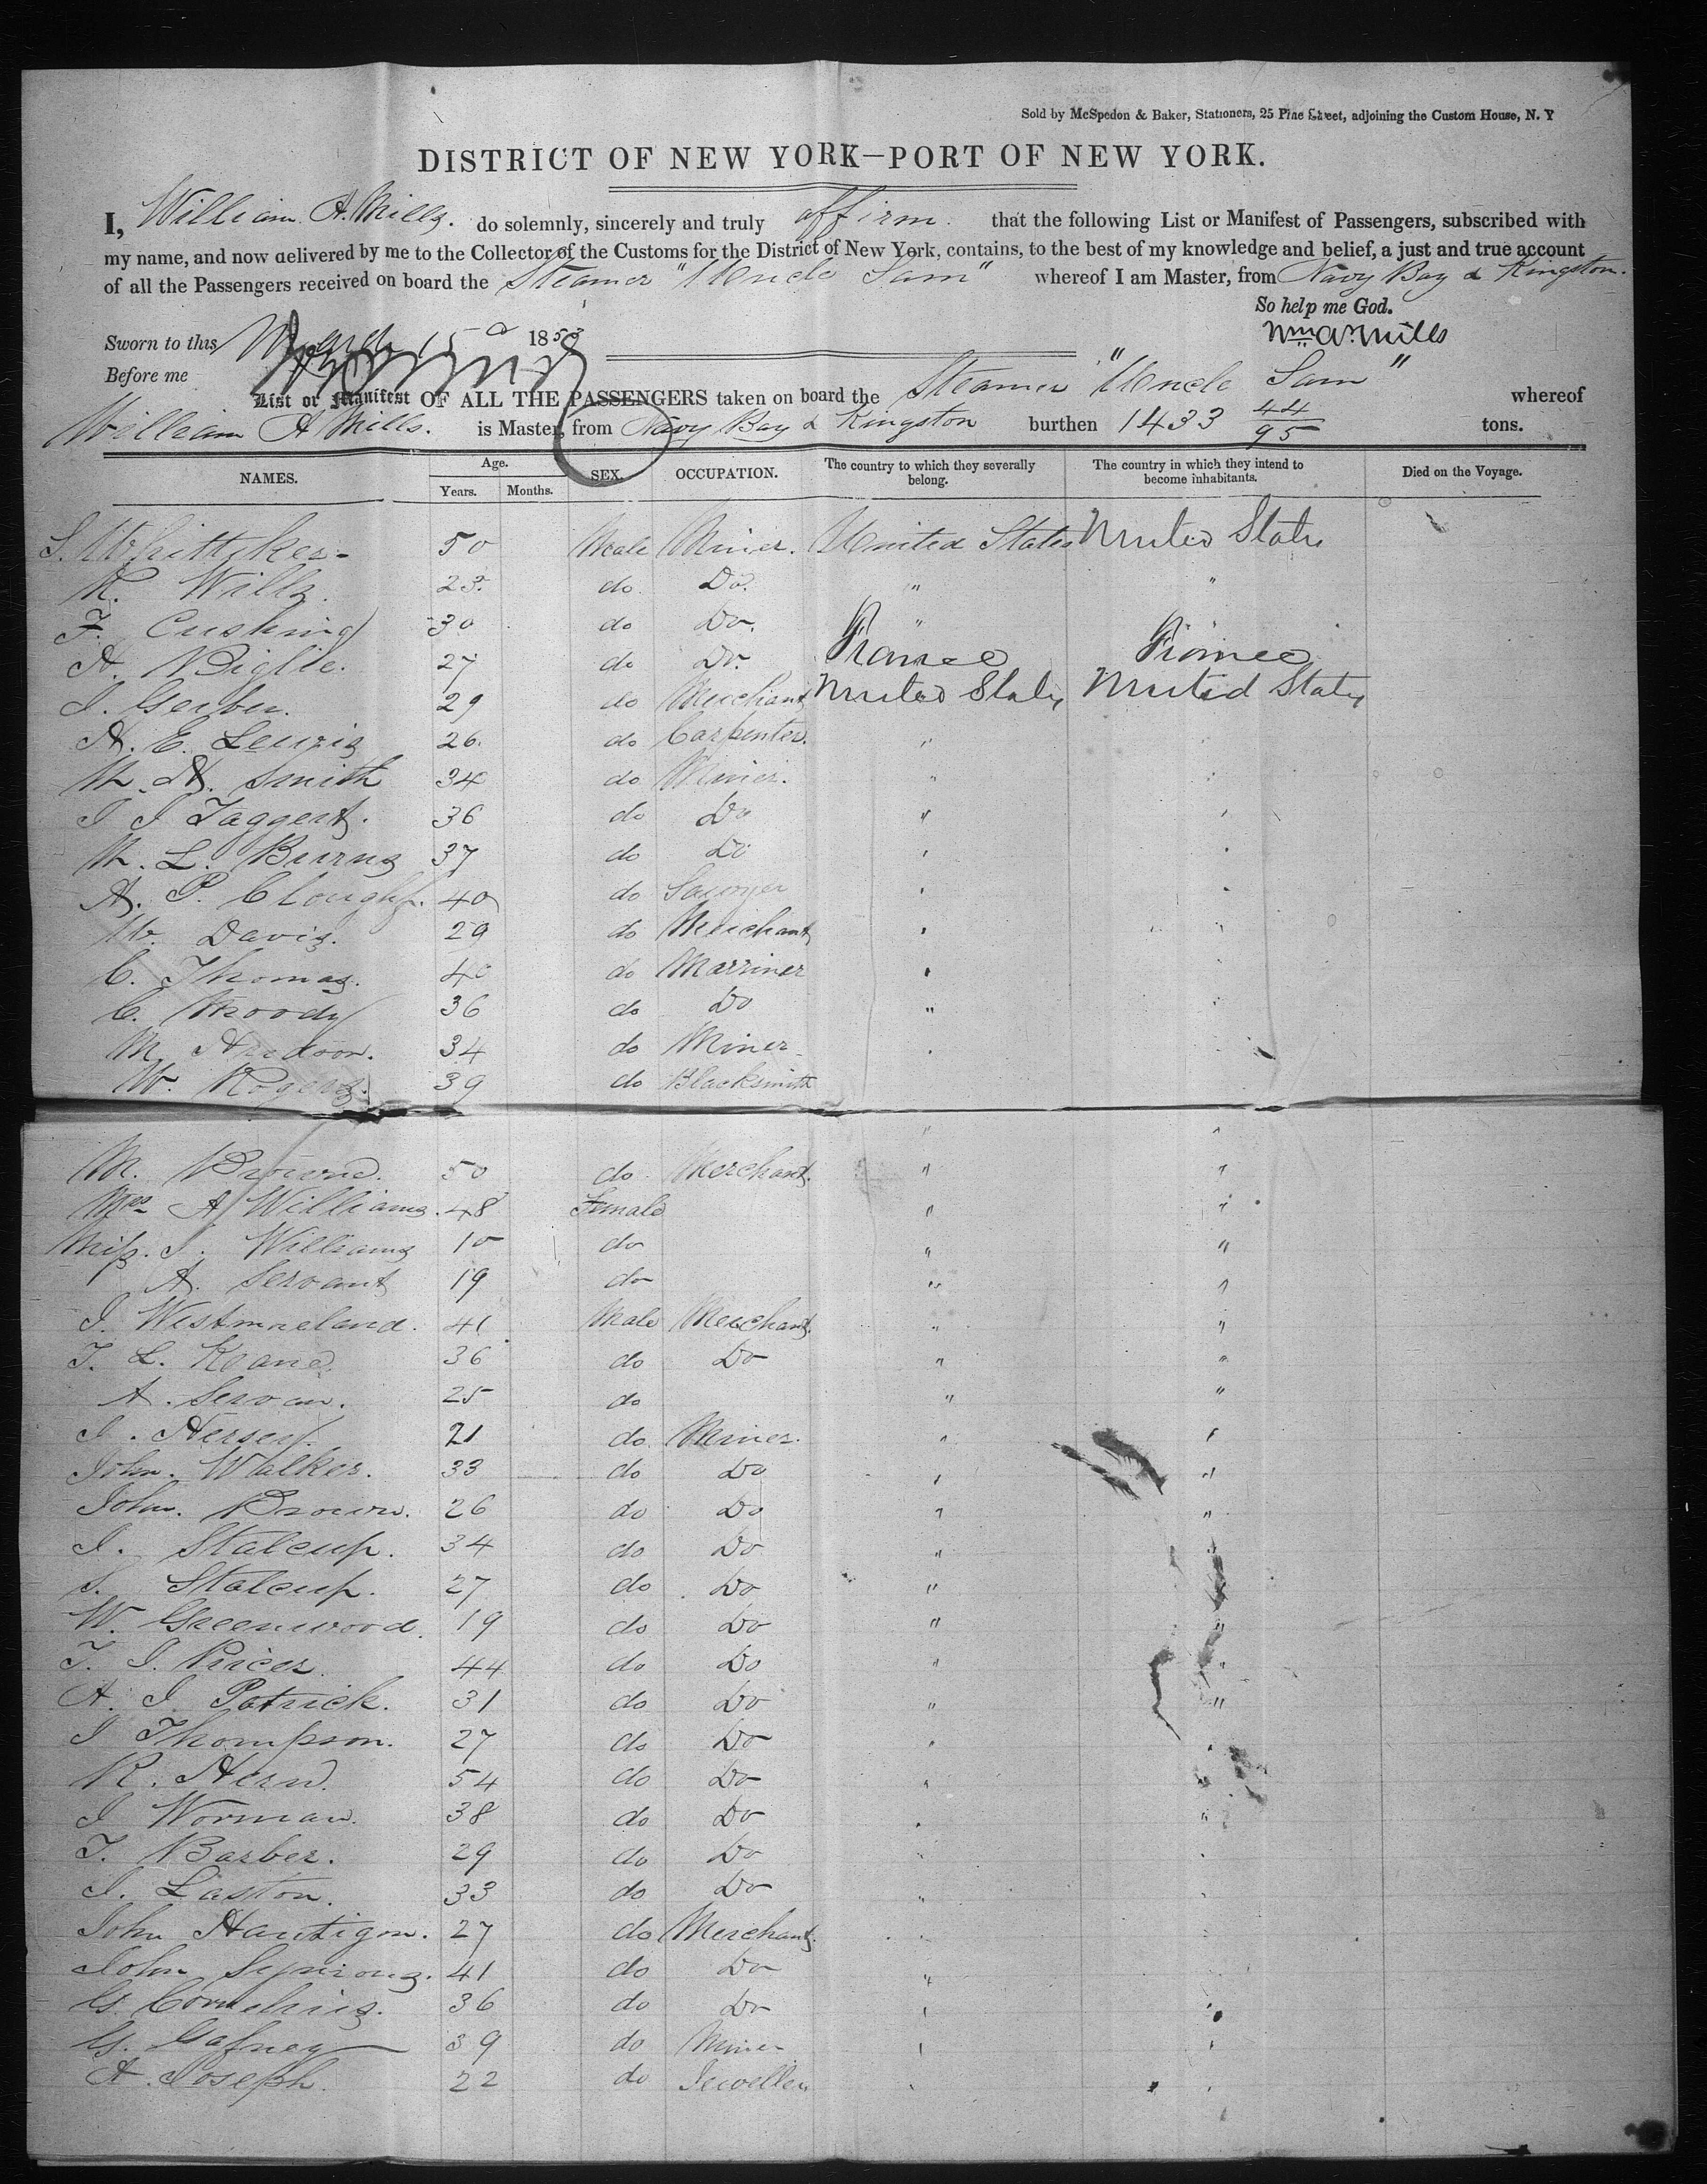 Sold by McSpedon & Baker, Stationers, 25 Pine Street, adjoining the Custom House, N. Y
DISTRICT OF NEW YORK—PORT OF NEW YORK.
I, William A. Mills. do solemnly, sincerely and truly affirm that the following List or Manifest of Passengers, subscribed with
my name, and now delivered by me to the Collector of the Customs for the District of New York, contains, to the best of my knowledge and belief, a just and true account
of all the Passengers received on board the Steamer "Uncle Sam" whereof I am Master, from Navy Bay & Kingston.
So help me God.
Sworn to this March 15 1853 Wm A. Mills
Before me
List or Manifest OF ALL THE PASSENGERS taken on board the Steamer "Uncle Sam" whereof
William A Mills. is Master, from Navy Bay & Kingston burthen 1433 44/95 tons.
NAMES. Age. Years. Months. SEX. OCCUPATION. The country to which they severally belong. The country in which they intend to become inhabitants. Died on the Voyage.
S. Whittyker 50 Male Miner. United States United States
R. Wills. 23. do Do. " "
F. Cushing 30 do Do. "
A. Biglie. 27 do Do. France France
J. Gerber. 29 do Merchant United States United States
A. E. Lewis 26. do Carpenter. "
M. A. Smith 34 do Miner. "
J J Taggert. 36 do Do "
M. L. Burns 37 do Do "
A. P. Clough. 40 do Sawyer "
W. Davis. 29 do Merchant "
C. Thomas. 40 do Marriner "
C. Moody 36 do Do "
M. 34 do Miner "
W. Rogers. 39 do Blacksmith
" "
M. Browne. 50 do Merchant. " "
Mrs A Williams. 48 Female " "
Miss. J. Williams 10 do " "
A. Servant 19 do " "
J. Westmoreland. 41 Male Merchant. " "
T. L. Keane. 36 do Do " "
A. Servan. 25 do " "
J. Hersey. 21 do Miner. " "
John. Walker. 33 do Do " "
John. Brown. 26 do Do " "
J. Stalcup. 34 do Do " "
S. Stalcup. 27 do Do " "
W. Greenwood. 19 do Do " "
T. J. Pricer 44 do Do " "
A. J. Patrick. 31 do Do " "
J Thompson. 27 do Do " "
R. Hern. 54 do Do " "
J Worman. 38 do Do " "
T. Barber. 29 do Do " "
J. Laston. 33 do Do " "
John Hantigon. 27 do Merchant. " "
John Symons. 41 do Do "
G. Cornelius. 36 do Do " "
G. Gafney 39 do Miner " "
A. Joseph. 22 do Jeweller " "